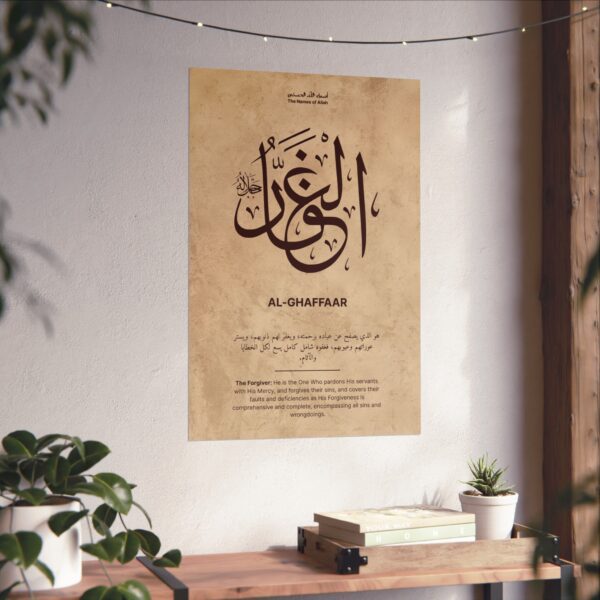 أسماء الله الحسنى
The Names of Allah
الغفار
جل جلاله
AL-GHAFFAAR
هو الذي يصفح عن عباده برحمته، ويغفر لهم ذنوبهم، ويستر
عوراتهم وعيوبهم، فعفوه شامل كامل يسع لكل الخطايا
والآثام.
The Forgiver: He is the One Who pardons His servants
with His Mercy, and forgives their sins, and covers their
faults and deficiencies as His Forgiveness is
comprehensive and complete, encompassing all sins and
wrongdoings.